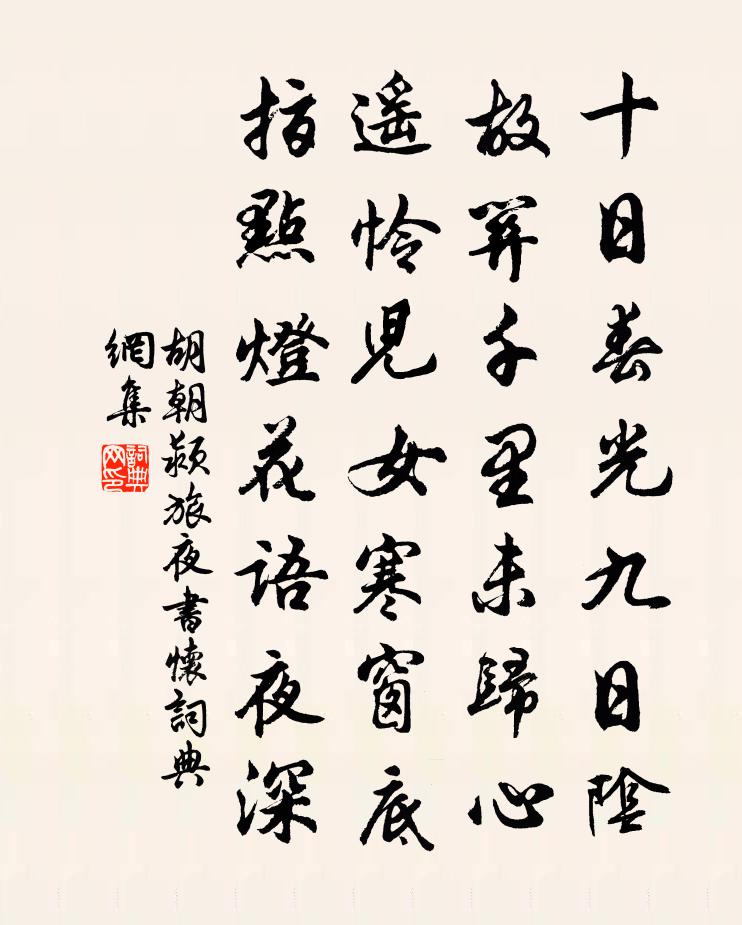 十日春光九日陰
故關千里未歸心
遙怜兒女寒窗底
指點燈花語夜深
胡朝穎旅夜書懷詞典
網集
詞典
网印